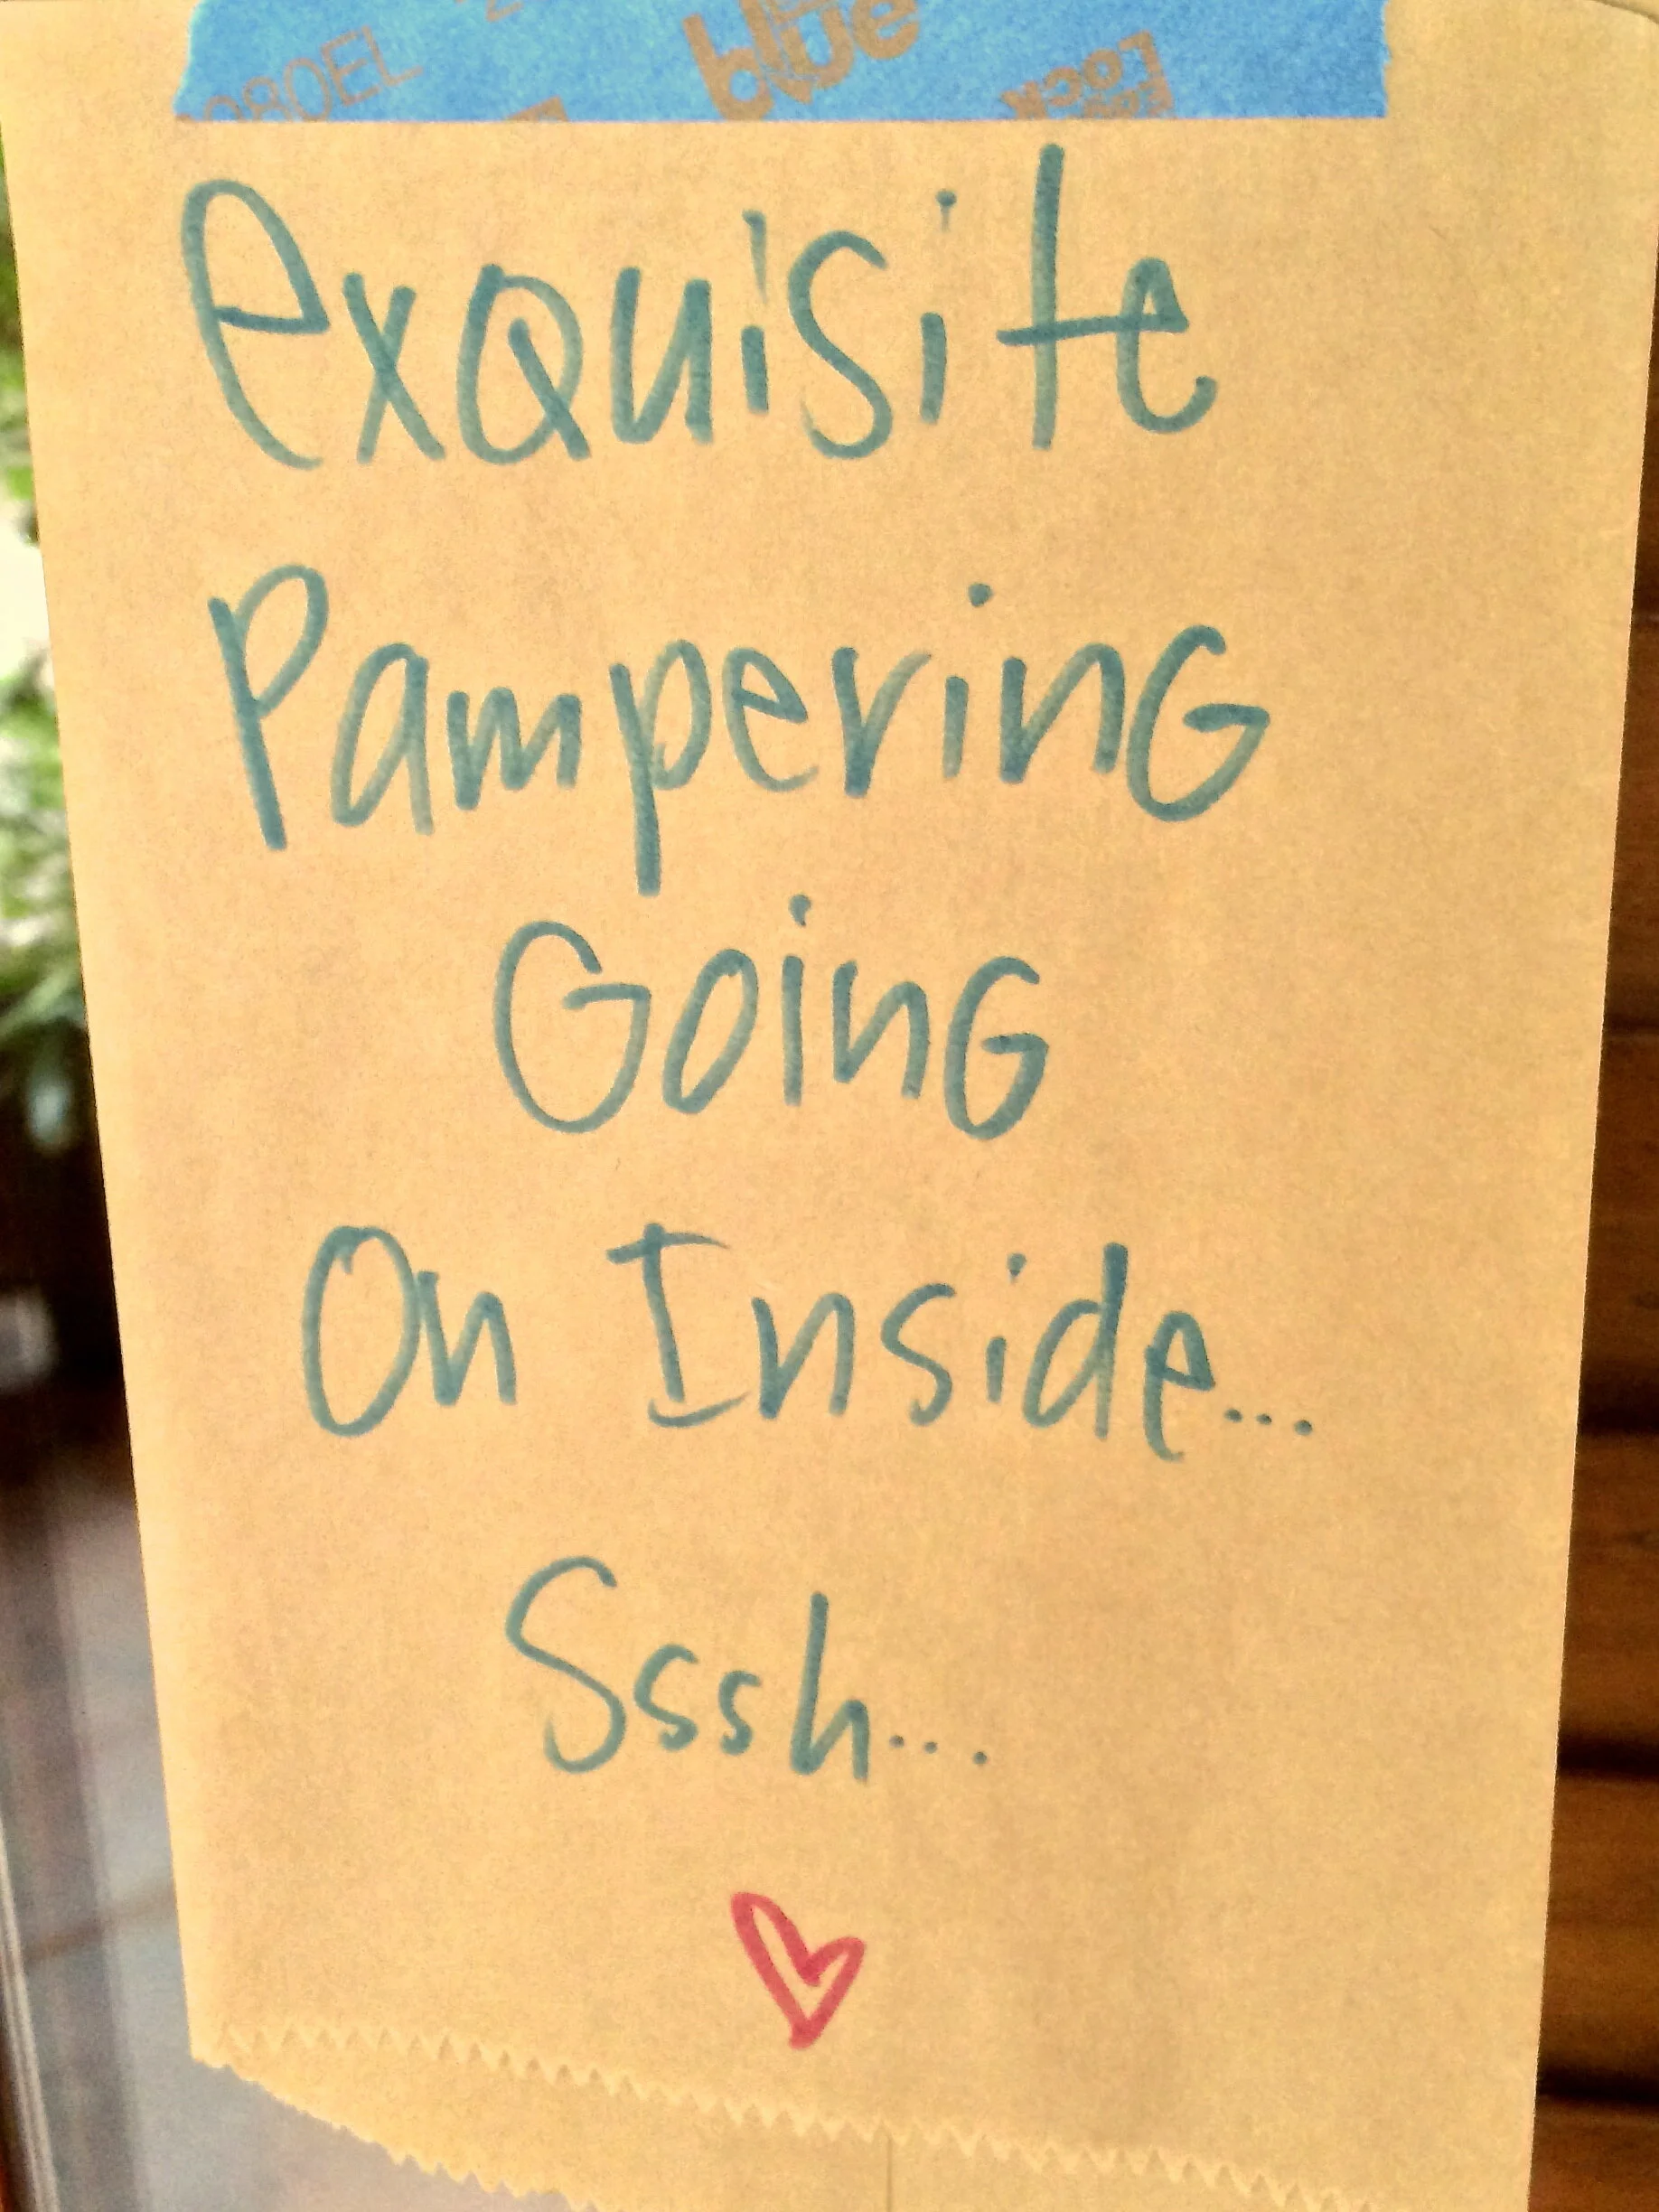 blue
EDGE LOCK
exquisite
PamperinG
GoinG
On Inside...
Sssh...